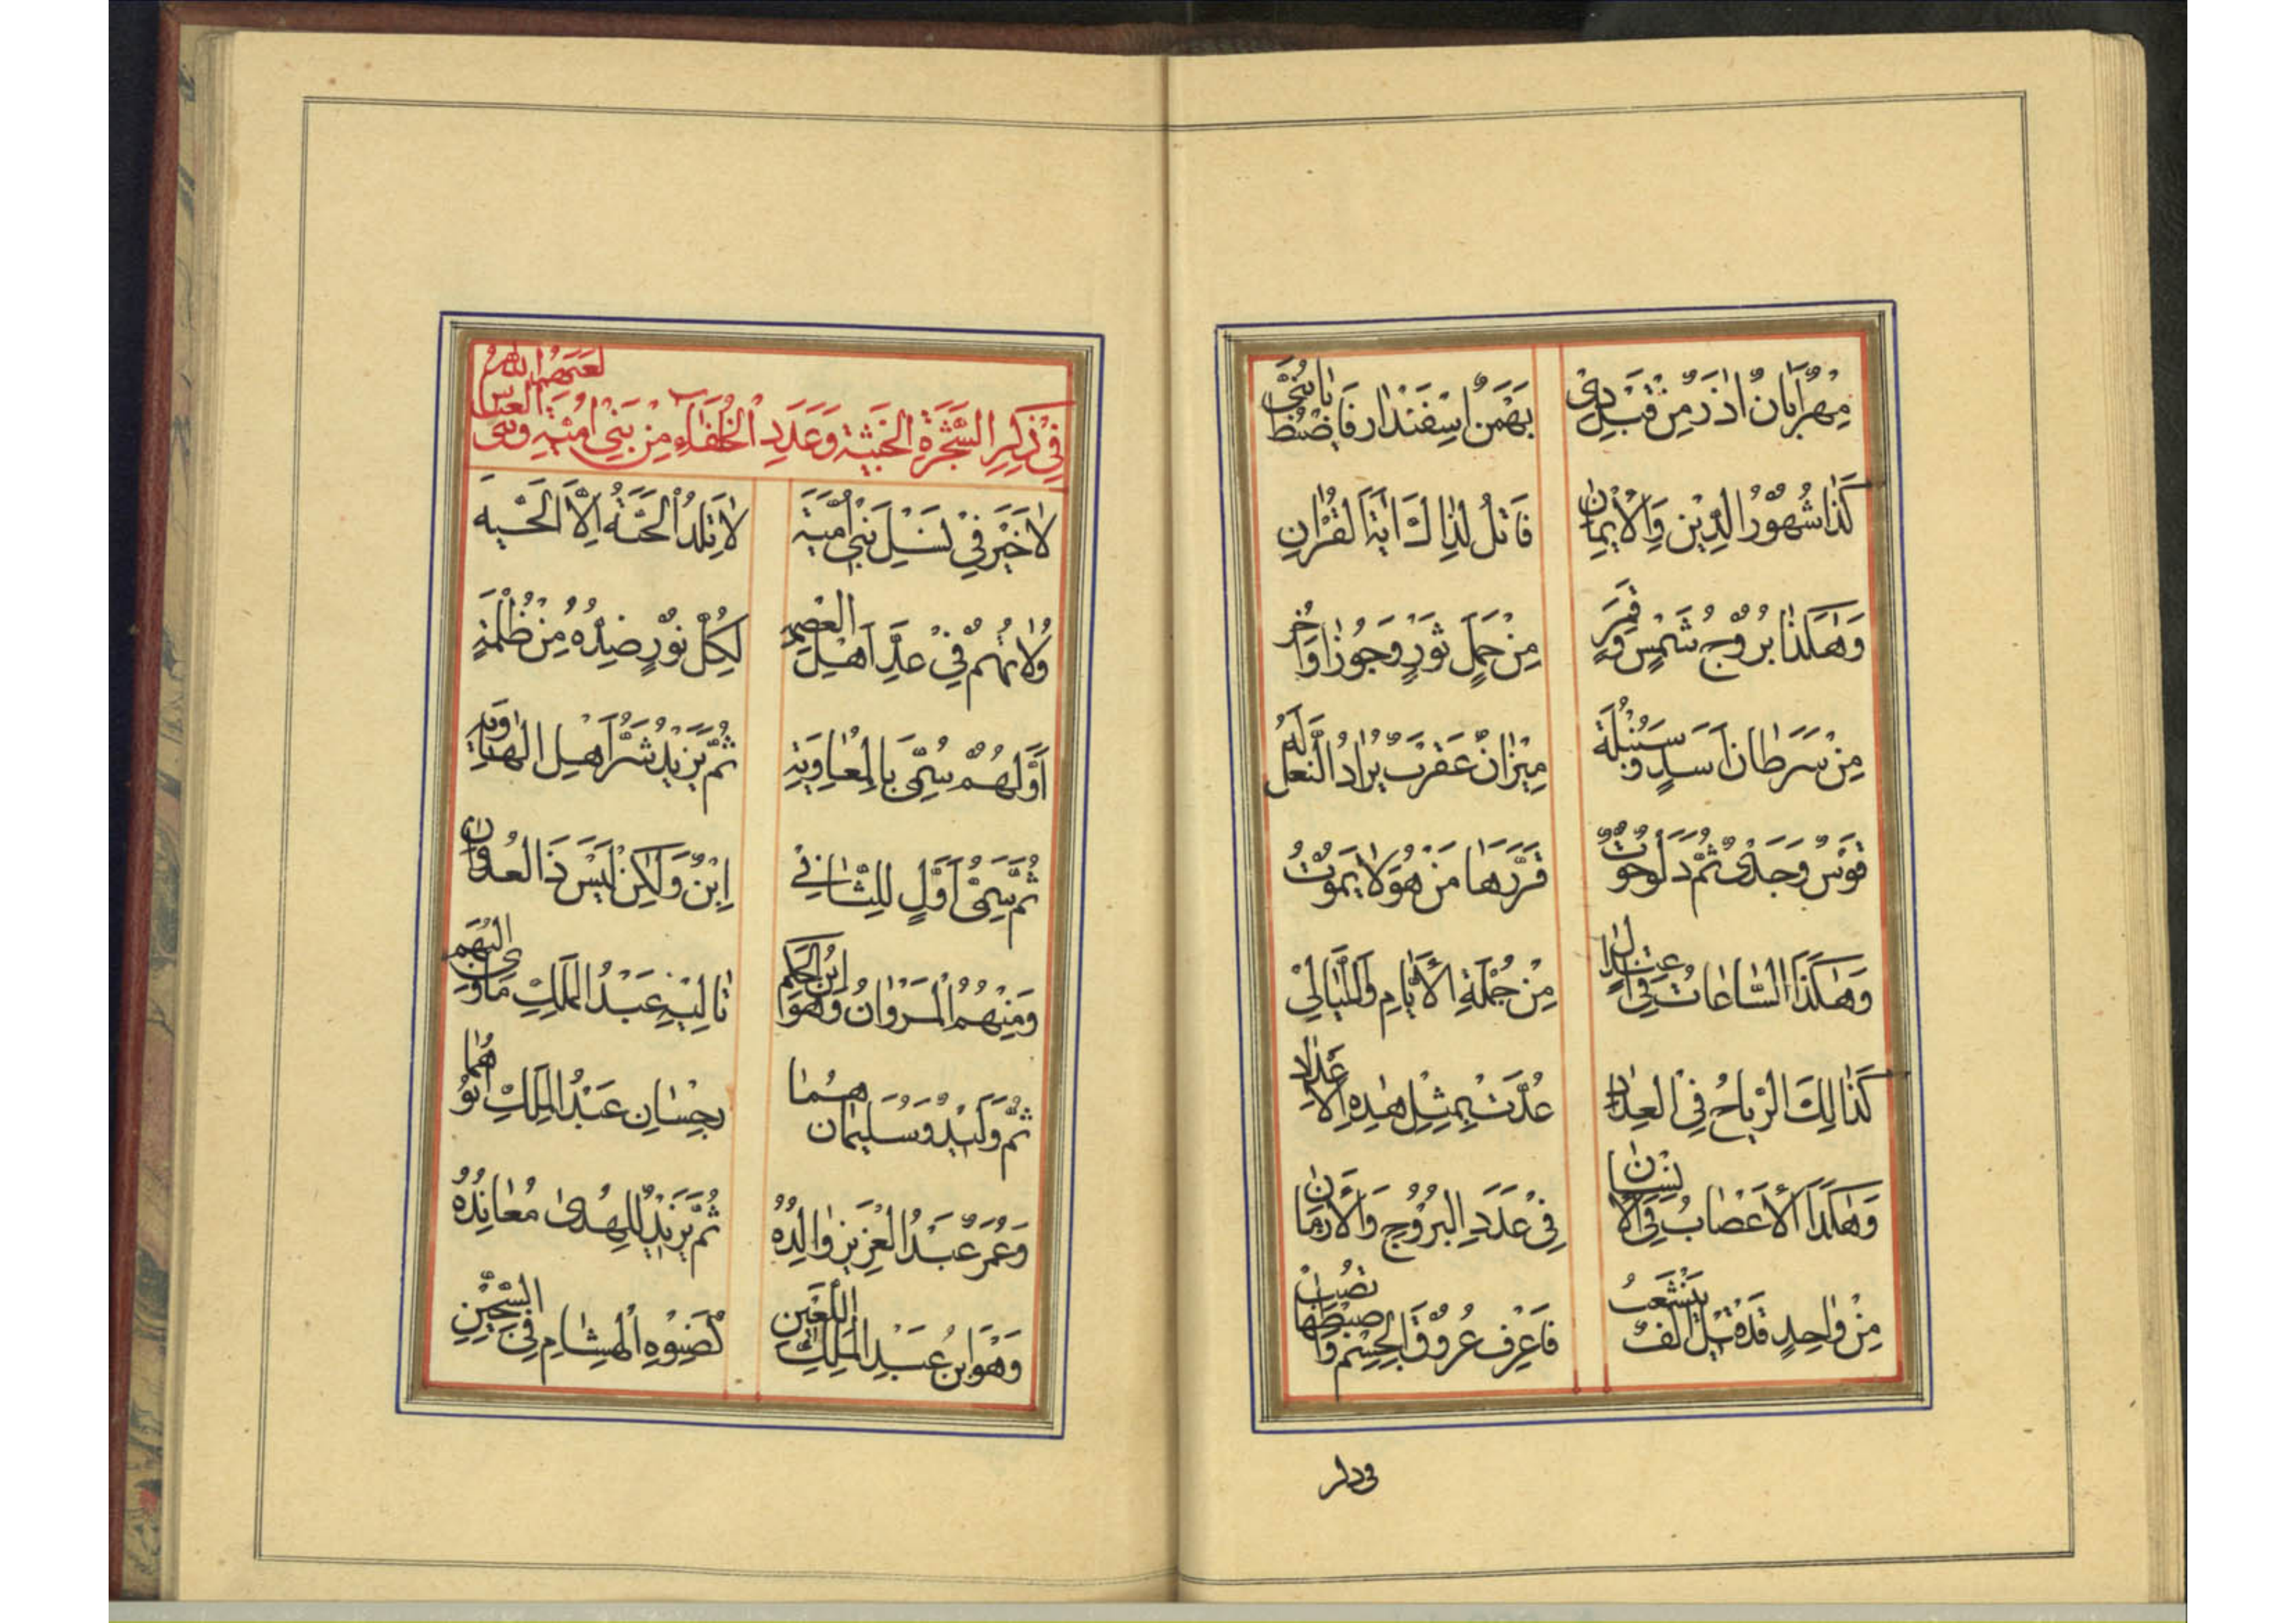 مِهْرٌ أَبَانُ اذَرٌ مِنْ قَبْلِ دِيْ بَهْمَنُ اسْفَنْدَار فَاضْبُطْ يَا بُنَيَّ
كَذَا شُهُوْرُ الدِّيْنِ وَالْاِيْمَانِ فَاتْلُ لِذَالِكَ اٰيَةَ الْقُرْاٰنِ
وَهٰكَذَا بُرُوْجُ شَمْسٍ وَقَمَرٍ مِنْ حَمَلٍ ثَوْرٍ وَجَوْزَا وَاُخَر
مِنْ سَرَطَانٍ اَسَدٍ وَسُنْبُلَة مِيْزَانٌ عَقْرَبٌ يُرَادُ النَّعل لَهُ
قَوْسٌ وَجَدْيٌ ثُمَّ دَلْوٌ حُوْتٌ قَرَّرَهَا مَنْ هُوَ لَا يَمُوْتُ
وَهٰكَذَا السَّاعَاتُ فِي اعْتِدَالٍ مِنْ جُمْلَةِ الْاَيَّامِ وَاللَّيَالِيْ
كَذَالِكَ الرِّيَاحُ فِي الْعِدَادِ عُدَّتْ بِمِثْلِ هٰذِهِ الْاَعْدَادِ
وَهٰكَذَا الْاَعْصَابُ فِي الْاِنْسَانِ فِيْ عَدَدِ الْبُرُوْجِ وَالْاَزْمَانِ
مِنْ وَاحِدٍ قَدْ قِيْلَ اَلْفٌ يَنْشَعِبُ فَاعْرِفْ عُرُوْقَ الْجِسْمِ وَاضْبِطْهَا تُصِبْ
فِيْ ذِكْرِ الشَّجَرَةِ الْخَبِيْثَةِ وَعَدَدِ الْخُلَفَاءِ مِنْ بَنِيْ اُمَيَّةَ وَبَنِي الْعَبَّاسِ لَعَنَهُمُ اللهُ
لَا خَيْرَ فِيْ نَسْلِ بَنِيْ اُمَيَّة لَا تَلِدُ الْحَيَّةُ اِلَّا الْحَيَّة
وُلَاتُهُمْ فِيْ عَدِّ اَهْلِ الْعِصْمَةِ لِكُلِّ نُوْرٍ ضِدُّهُ مِنْ ظُلْمَةٍ
اَوَّلُهُمْ سُمِّيَ بِالْمُعَاوِيَةِ ثُمَّ يَزِيْدُ شَرُّ اَهْلِ الْهَاوِيَةِ
ثُمَّ سَمِيُّ اَوَّلٍ لِلثَّانِيْ اِبْنٌ وَلٰكِنْ لَيْسَ ذَا الْعُدْوَانِ
وَمِنْهُمُ الْمَرْوَانُ وَهُوَ ابْنُ الْحَكَمِ تَالِيْهِ عَبْدُ الْمَلِكِ مَأْوَى التُّهَمِ
ثُمَّ وَلِيْدٌ وَسُلَيْمَان هُمَا عَبْدُ الْمَلِكِ اَبُوْهُمَا
وَعُمَرٌ عَبْدُ الْعَزِيْزِ وَالِدُهُ ثُمَّ يَزِيْدٌ لِلْهُدٰى مُعَانِدُهُ
وَهُوَ ابْنُ عَبْدِ الْمَلِكِ اللَّعِيْنِ كَصِنْوِهِ الْهِشَامِ فِيْ السِّجِّيْنِ